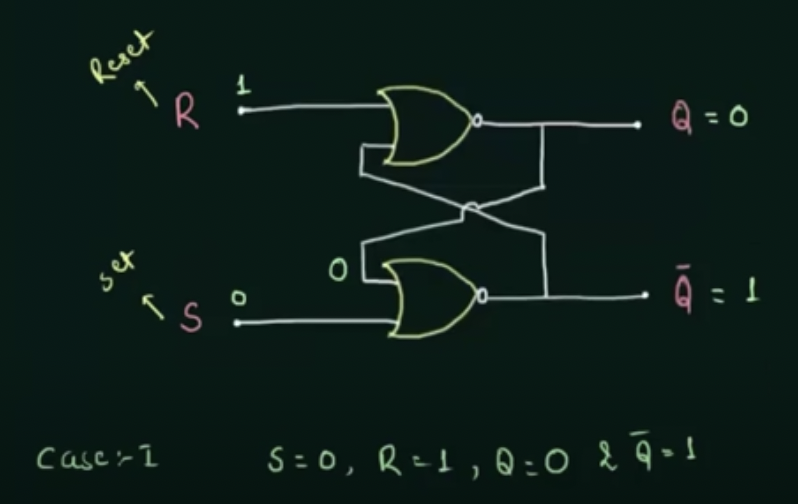 Reset
R 1 Q = 0
0
set
S 0 Q̄ = 1
Case:-I S=0, R=1, Q=0 & Q̄=1